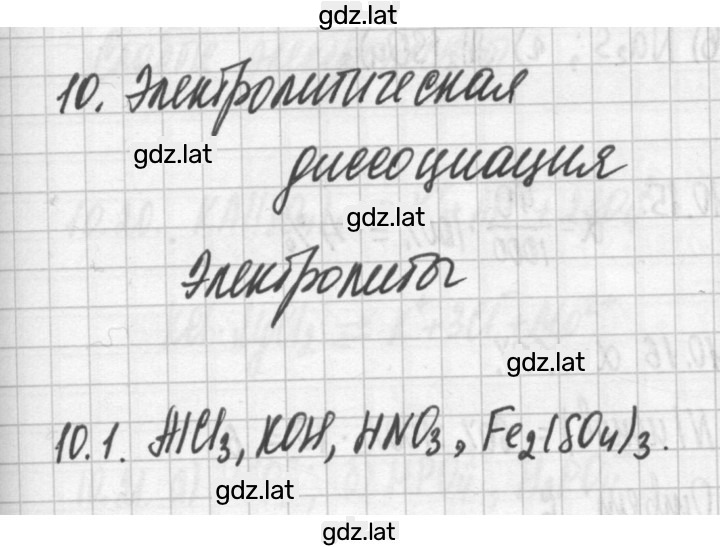 gdz.lat
10. Электролитическая
gdz.lat
диссоциация
gdz.lat
Электролиты
gdz.lat
10.1. AlCl₃, KOH, HNO₃, Fe₂(SO₄)₃.
gdz.lat
gdz.lat